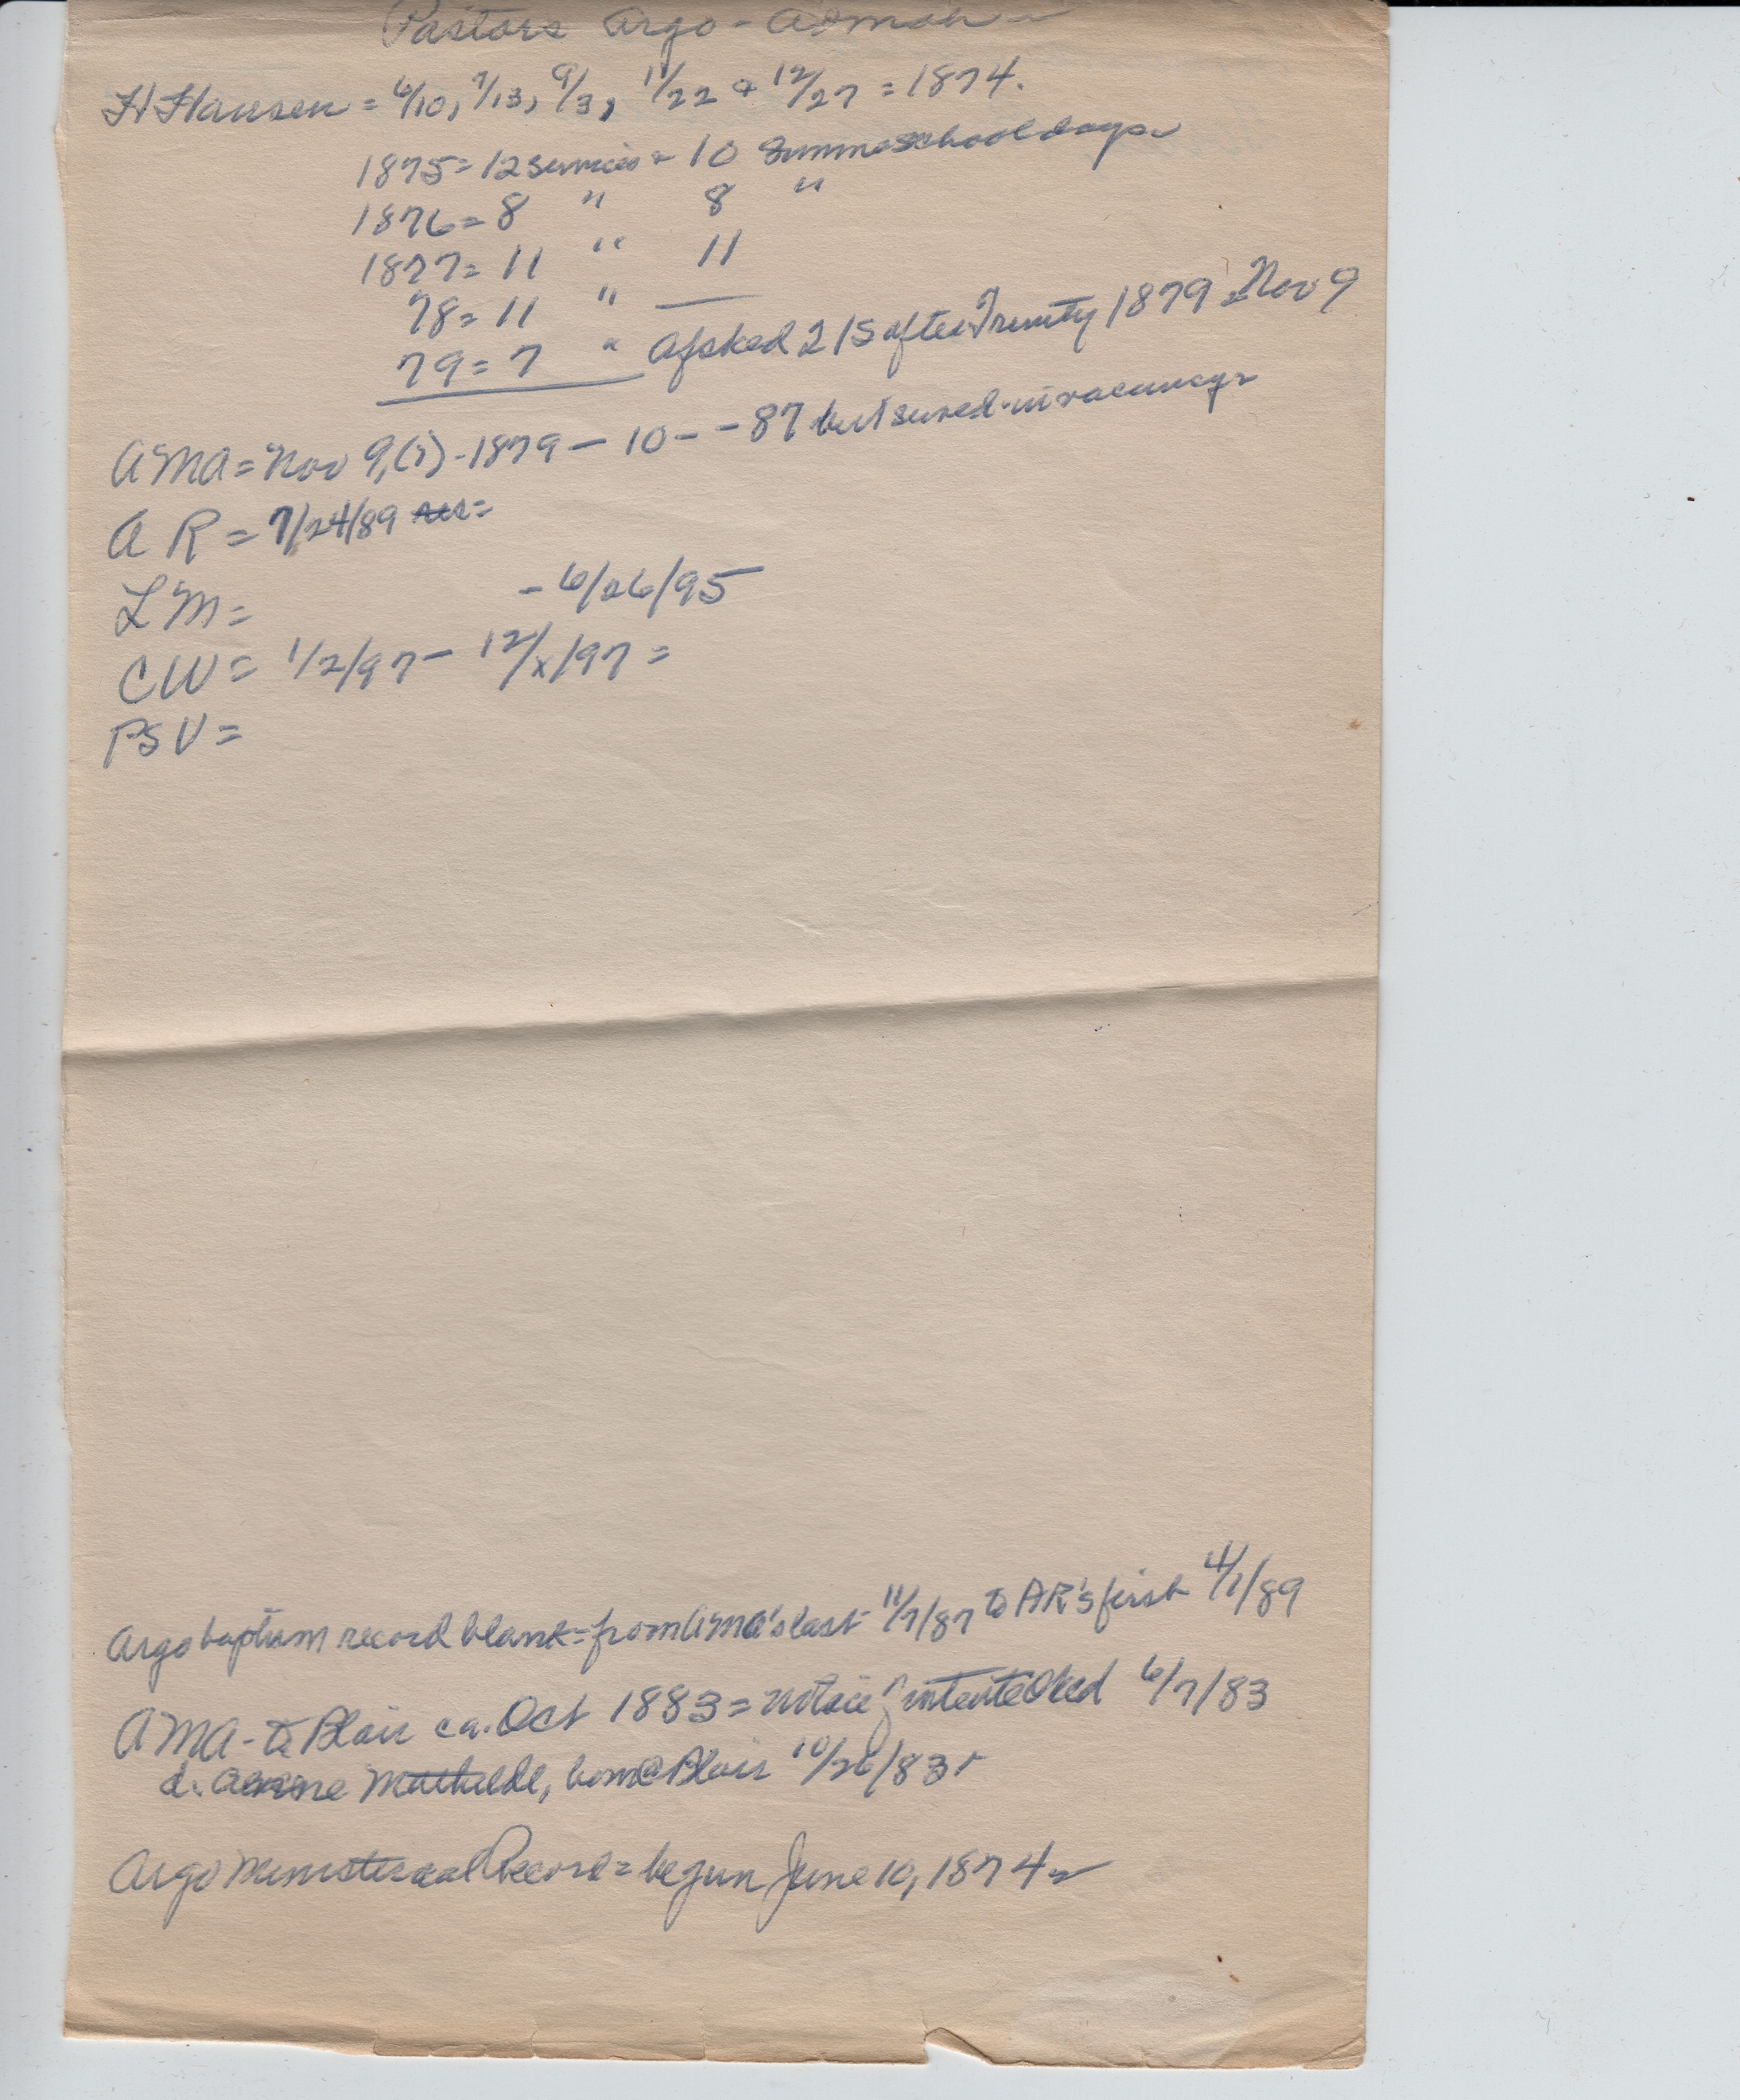 Pastors Argo -
H Hansen = 6/10, 7/13, 9/3, 11/22 + 12/27 = 1874.
1875 = 12 services + 10 summerschooldays
1876 = 8 " 8 "
1877 = 11 " 11
78 = 11 " —
79 = 7 " Afsked 21 S after Trinity 1879 = Nov 9
AMA = Nov 9, (?) - 1879 — 10 - - 87 but served in vacancy
A R = 7/24/89
LM = - 6/26/95
CW = 1/2/97 - 12/x/97 =
PSV =
Argo baptism record blank = from AMA's last 11/7/87 to AR's first 4/1/89
AMA - to Blair ca. Oct 1883 = notice of 6/7/83
d. Mathilde, born @ Blair 10/26/83
Argo Ministerial Record = begun June 10, 1874